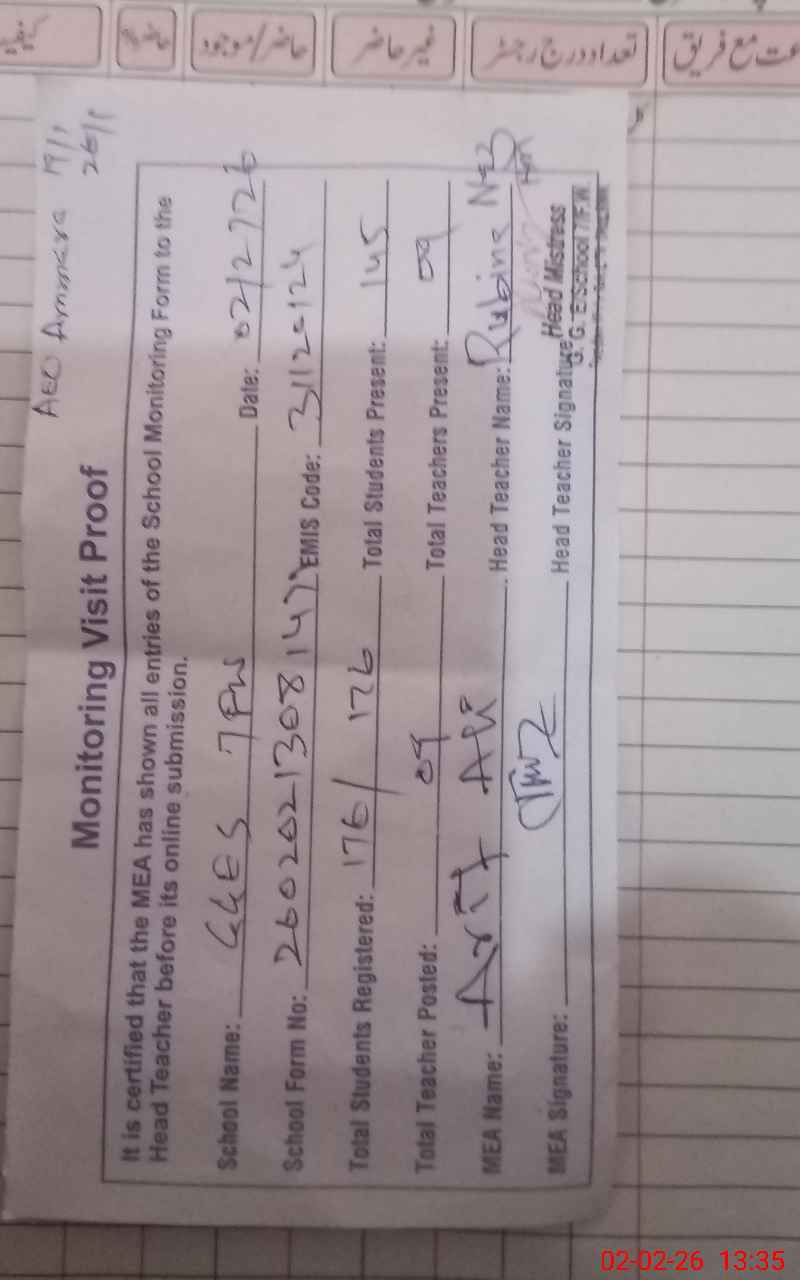 عت مع فریق
تعداد درج رجسٹر
غیر حاضر
حاضر/موجود
AEO Ammara 19/1
26/1
Monitoring Visit Proof
It is certified that the MEA has shown all entries of the School Monitoring Form to the
Head Teacher before its online submission.
School Name: GGES 7FW Date: 02/2/26
School Form No: EMIS Code: 31120124
Total Students Registered: 176/176 Total Students Present: 145
Total Teacher Posted: 09 Total Teachers Present: 09
MEA Name: Arif Ali Head Teacher Name: Rubina
MEA Signature: Head Teacher Signature
Head Mistress
G. G. E/School 7/FW
02-02-26 13:35